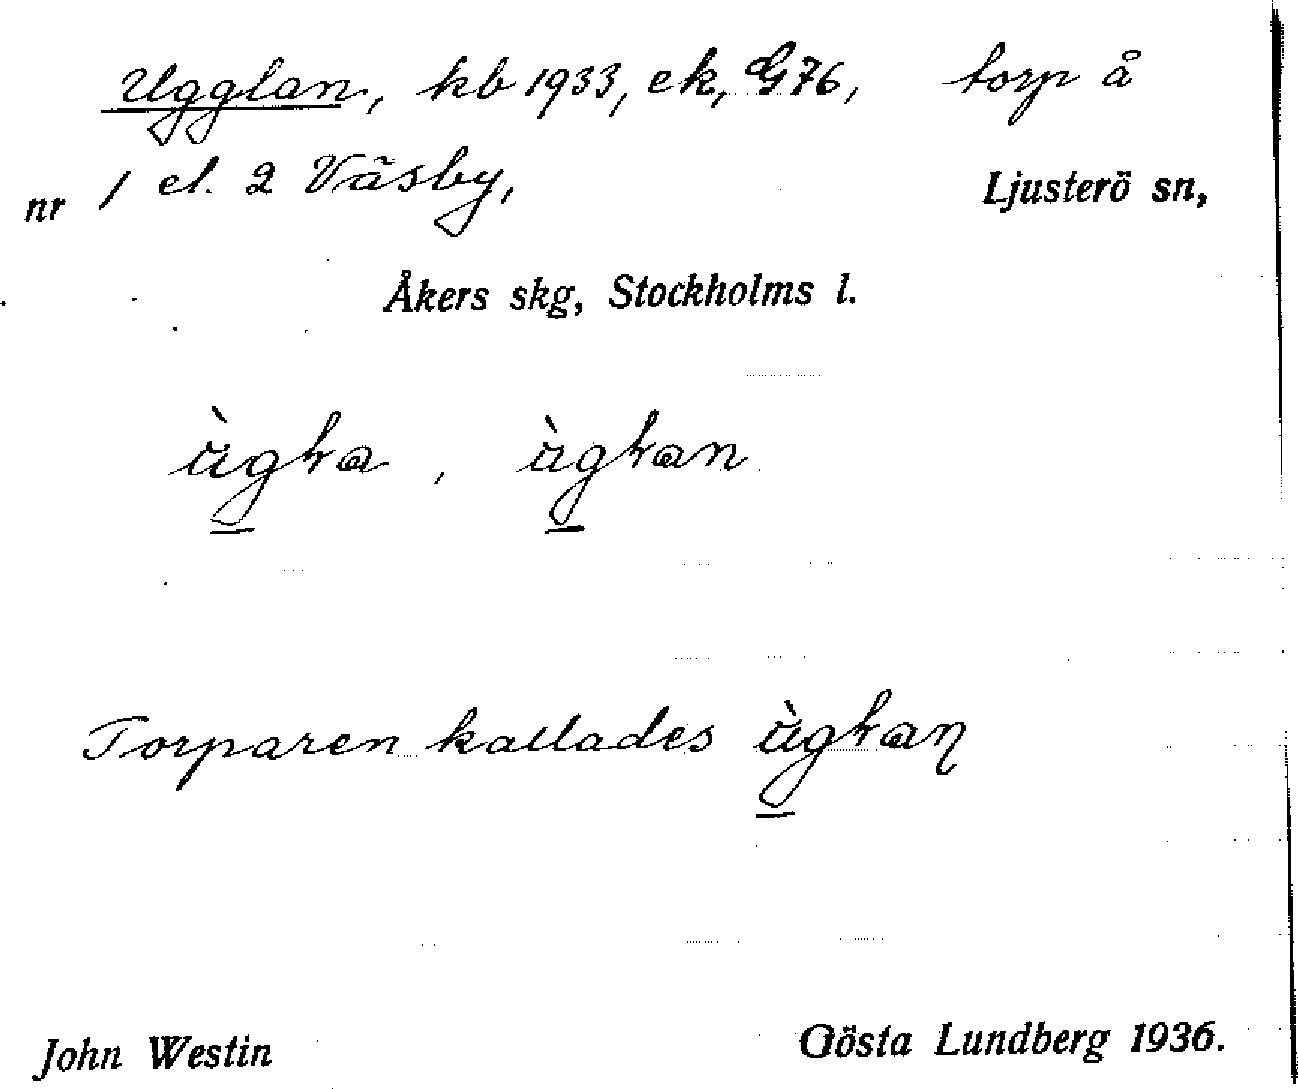 Ugglan, kb 1933, ek, G76, torp å
nr 1 el. 2 Väsby, Ljusterö sn,
Åkers skg, Stockholms l.
Torparen kallades
John Westin Gösta Lundberg 1936.